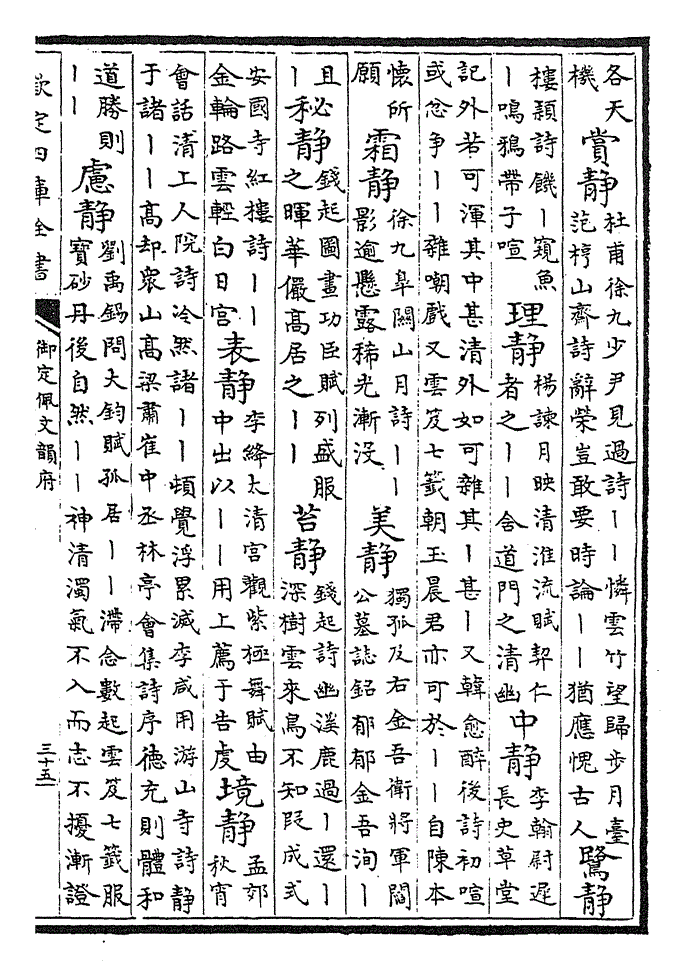 各天
機
賞靜
杜甫徐九少尹見過詩丨丨憐雲竹望歸步月臺
范梈山齋詩辭榮豈敢要時論丨丨猶應愧古人
鷺靜
樓穎詩饑丨窺魚
丨鳴鴉帶子喧
理靜
楊諫月映清淮流賦契仁
者之丨丨含道門之清幽
中靜
李翰尉遲
長史草堂
記外若可渾其中甚清外如可雜其丨甚丨又韓愈醉後詩初喧
或忿争丨丨雜嘲戲又雲笈七籤朝玉晨君亦可於丨丨自陳本
懷所
願
霜靜
徐九臯關山月詩丨丨
影逾懸露稀光漸没
美靜
獨孤及右金吾衛將軍閻
公墓誌銘郁郁金吾洵丨
且
丨
秘靜
錢起圖畫功臣賦列盛服
之暉華儼高居之丨丨
苔靜
錢起詩幽溪鹿過丨還丨
深樹雲來鳥不知叚成式
安國寺紅樓詩丨丨
金輪路雲輕白日宮
表靜
李絳太清宮觀紫極舞賦由
中出以丨丨用上薦于告䖍
境靜
孟郊
秋宵
會話清上人院詩泠然諸丨丨頓覺浮累減李咸用游山寺詩靜
于諸丨丨高却衆山高梁肅崔中丞林亭會集詩序德充則體和
道勝則
丨丨
慮靜
劉禹錫問大鈞賦孤居丨丨滯念數起雲笈七籤服
寶砂丹後自然丨丨神清濁氣不入而志不擾漸證
欽定四庫全書
御定佩文韻府
三十五